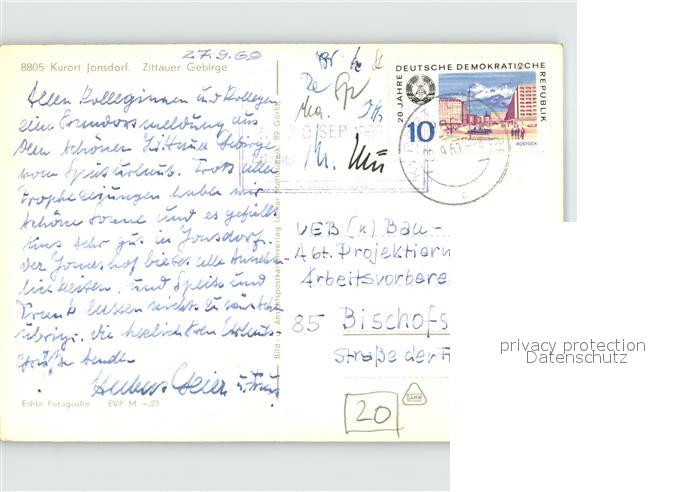 27.9.69
8805 Kurort Jonsdorf. Zittauer Gebirge
Allen Kolleginnen und Kollegen
eine
aus
dem schönen Zittauer Gebirge
vom Späturlaub. Trotz aller
Prophezeijungen haben wir
schöne Sonne und es gefällt
uns sehr gut in Jonsdorf.
Der Jonashof bietet alle Annehm-
lichkeiten, und Speise und
Trank lassen nichts zu wünschen
übrig. Die herzlichsten Urlaubs-
grüße senden
u. Frau
Echte Fotografie EVP M -.25
20 JAHRE DEUTSCHE DEMOKRATISCHE REPUBLIK
10
ROSTOCK
30. SEP. 1969
VEB (K) Bau-
Abt. Projektierun
Arbeitsvorbere
85 Bischofs
Straße der F
20
privacy protection
Datenschutz